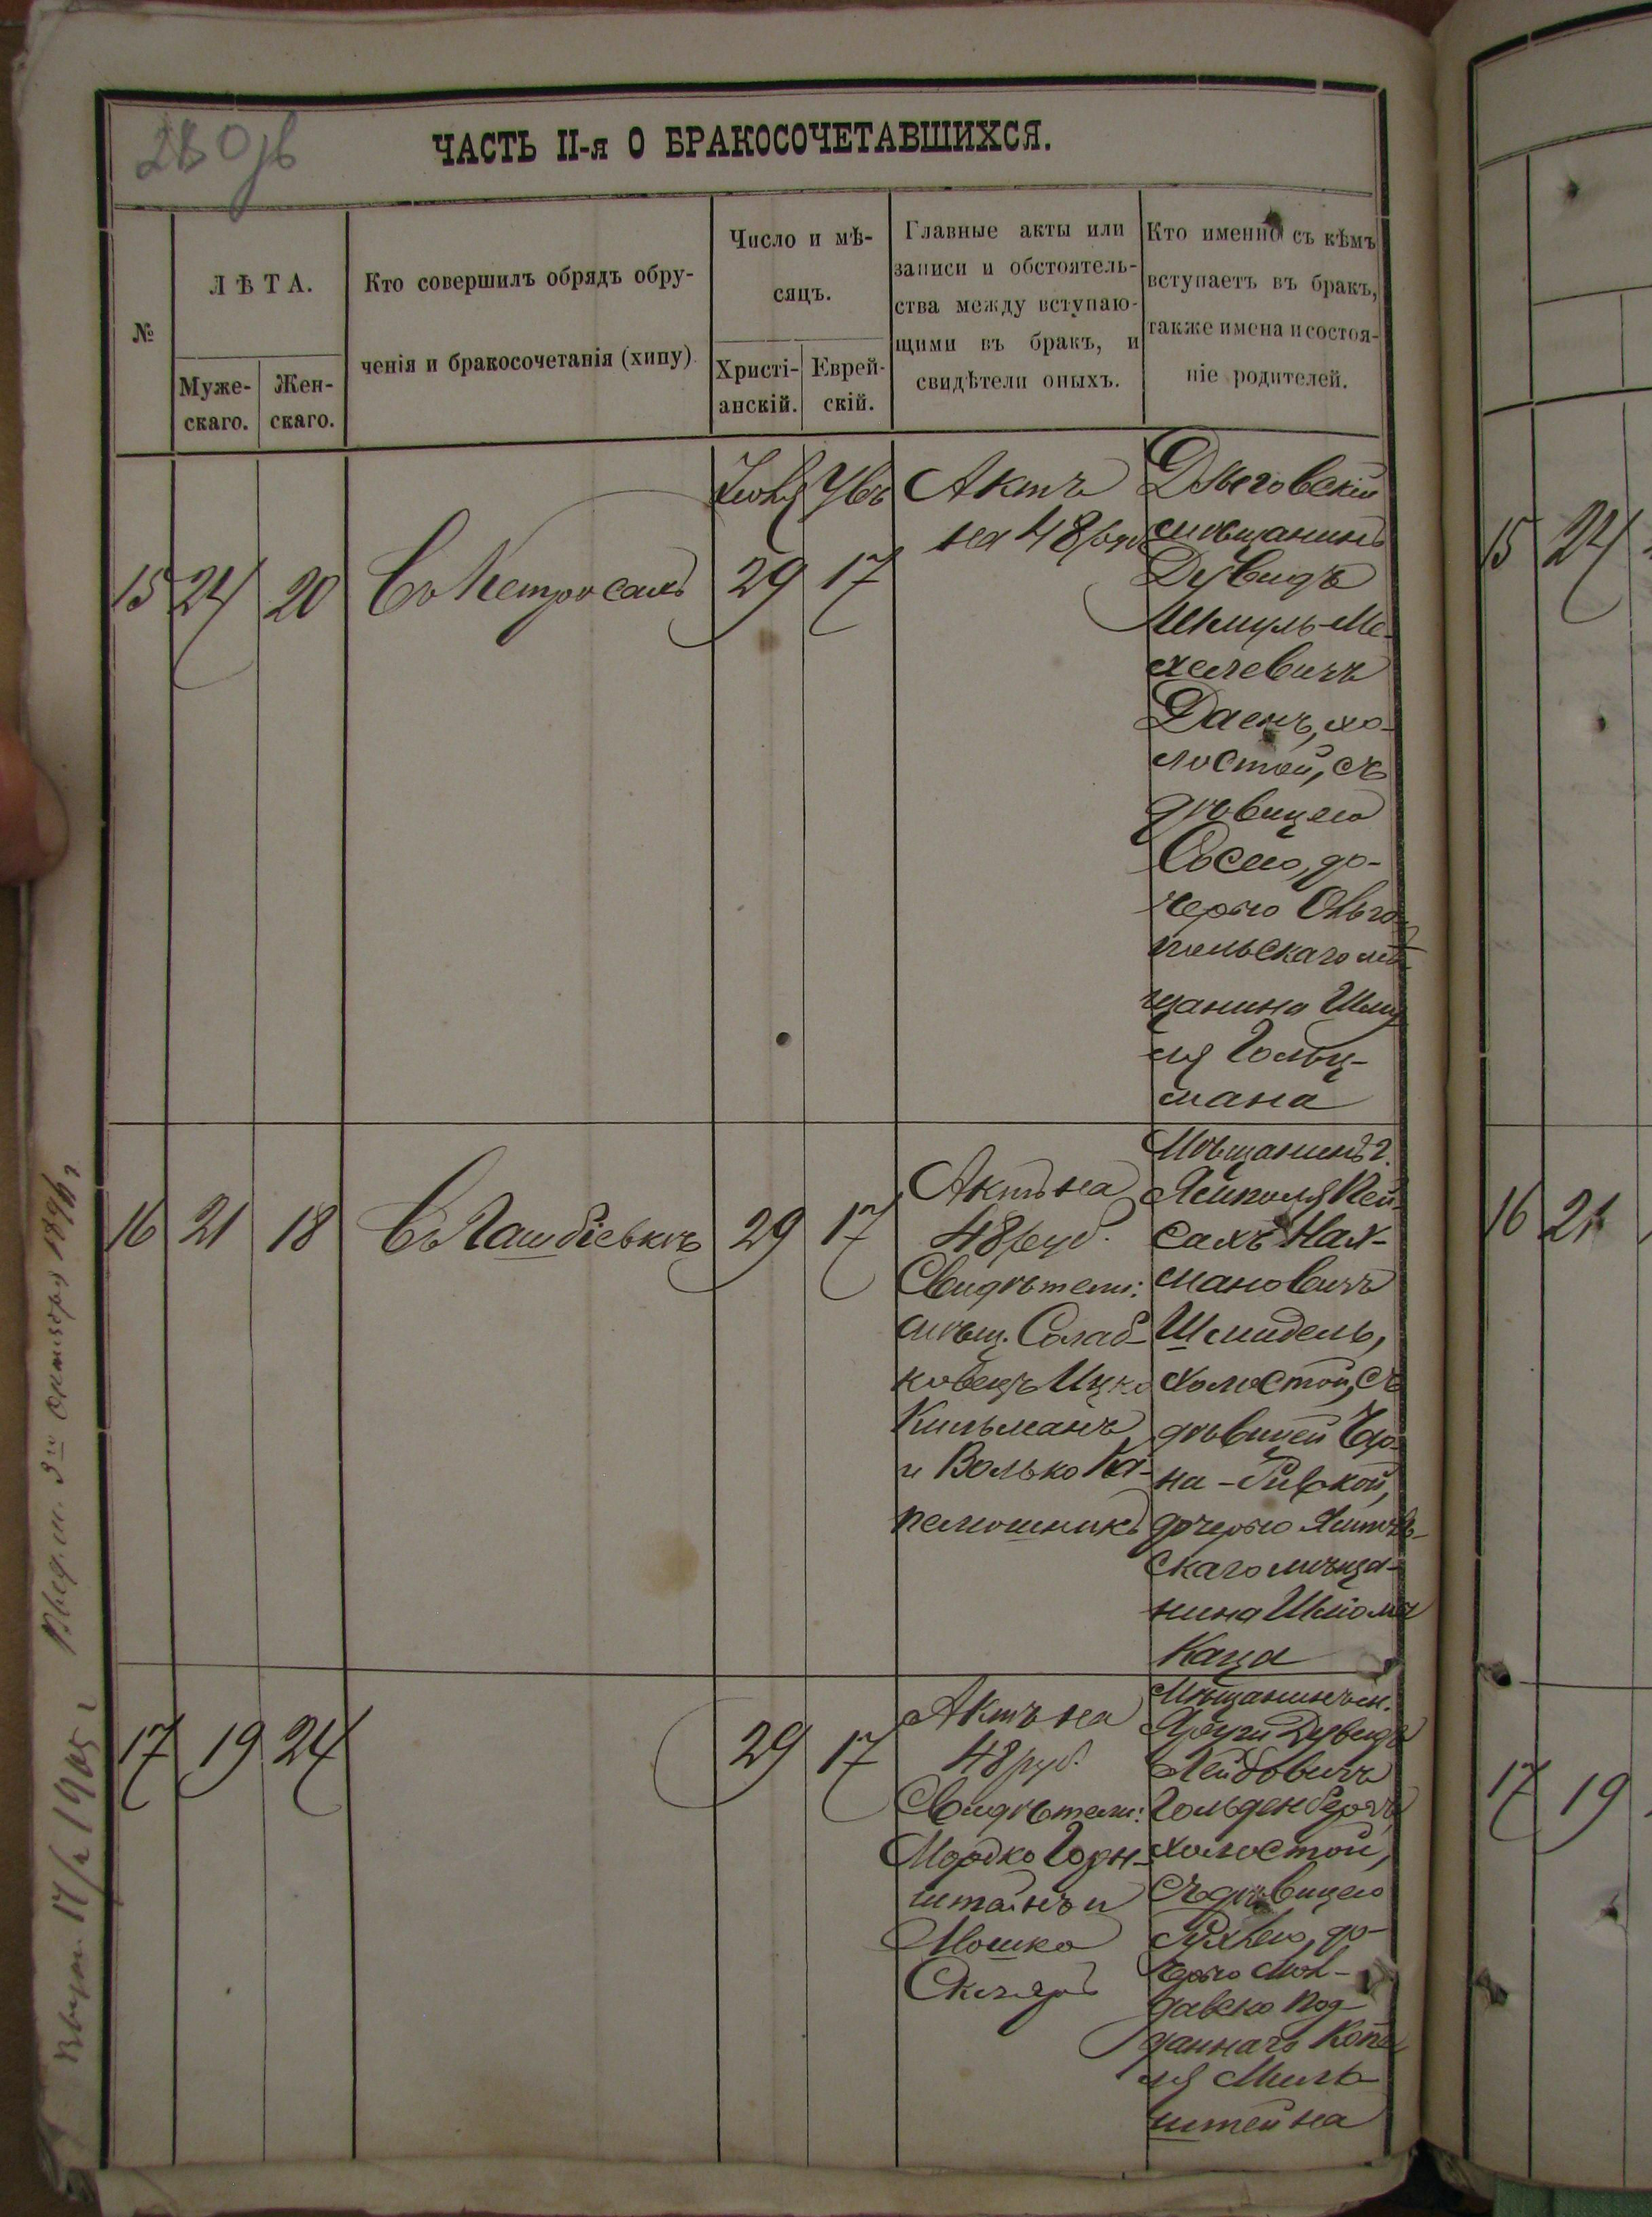 ЧАСТЬ II-я О БРАКОСОЧЕТАВШИХСЯ.
№
ЛѢТА.
Муже-
скаго.
Жен-
скаго.
Кто совершилъ обрядъ обру-
ченія и бракосочетанія (хипу)
Число и мѣ-
сяцъ.
Христі-
анскій.
Еврей-
скій.
Главные акты или
записи и обстоятель-
ства между вступаю-
щими въ бракъ, и
свидѣтели оныхъ.
Кто именно съ кѣмъ
вступаетъ въ бракъ,
также имена и состоя-
ніе родителей.
15
24
20
29
17
Актъ
на 48 руб
мѣщанинъ
Дувидъ
Шмуль-Ме-
хелевичъ
Даенъ, хо-
лостой, съ
дѣвицею
Сосею, до-
черью Ольго-
польскаго мѣ-
щанина Шму
ля Гольц-
мана
16
21
18
29
17
Актъ на
48 руб.
Свидѣтели:
мѣщ. Солоб-
ковецъ Ицко
Кильманъ
и Волько Ка-
пелюшникъ
Мѣщанинъ г.
Ямполя Пей-
сахъ Нах-
мановичъ
Шмидель,
холостой, съ
дѣвицей
на-Ривкой,
дочерью
скаго мѣща-
нина Шліома
Каца
17
19
24
29
17
Актъ на
48 руб.
Свидѣтели:
Мордко Горн-
штайнъ и
Мошко
Скляръ
Мѣщанинъ м.
Яруги Дувидъ
Лейбовичъ
Гольденбергъ,
холостой,
съ дѣвицею
Рухлею, до-
черью Мол-
давско под-
даннаго Копе
ля Миль-
штейна
15
24
16
21
17
19